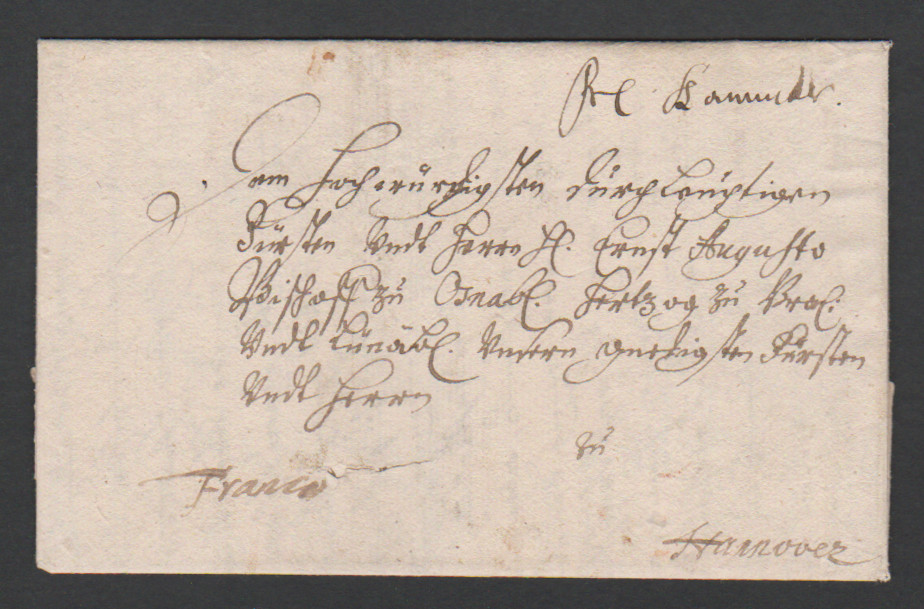 Cammer.
Dem Hochwürdigsten durchleuchtigen
Fürsten Undt Herrn H. Ernst Augusto
Bischoff zu Osnabl. Hertzog zu Bra:
Undt Lünäbl. Unsern gnedigsten Fürsten
Undt Herrn
zu
Franco
Hannover